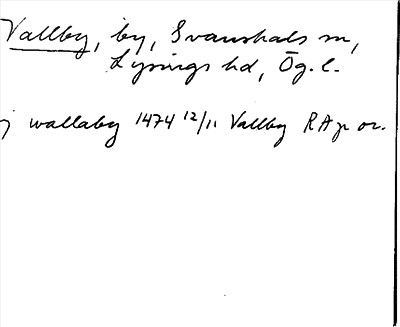 Vallby, by, Svanshals sn,
Lysings hd, Ög. l.
j wallaby 1474 12/11 Vallby RAp or.